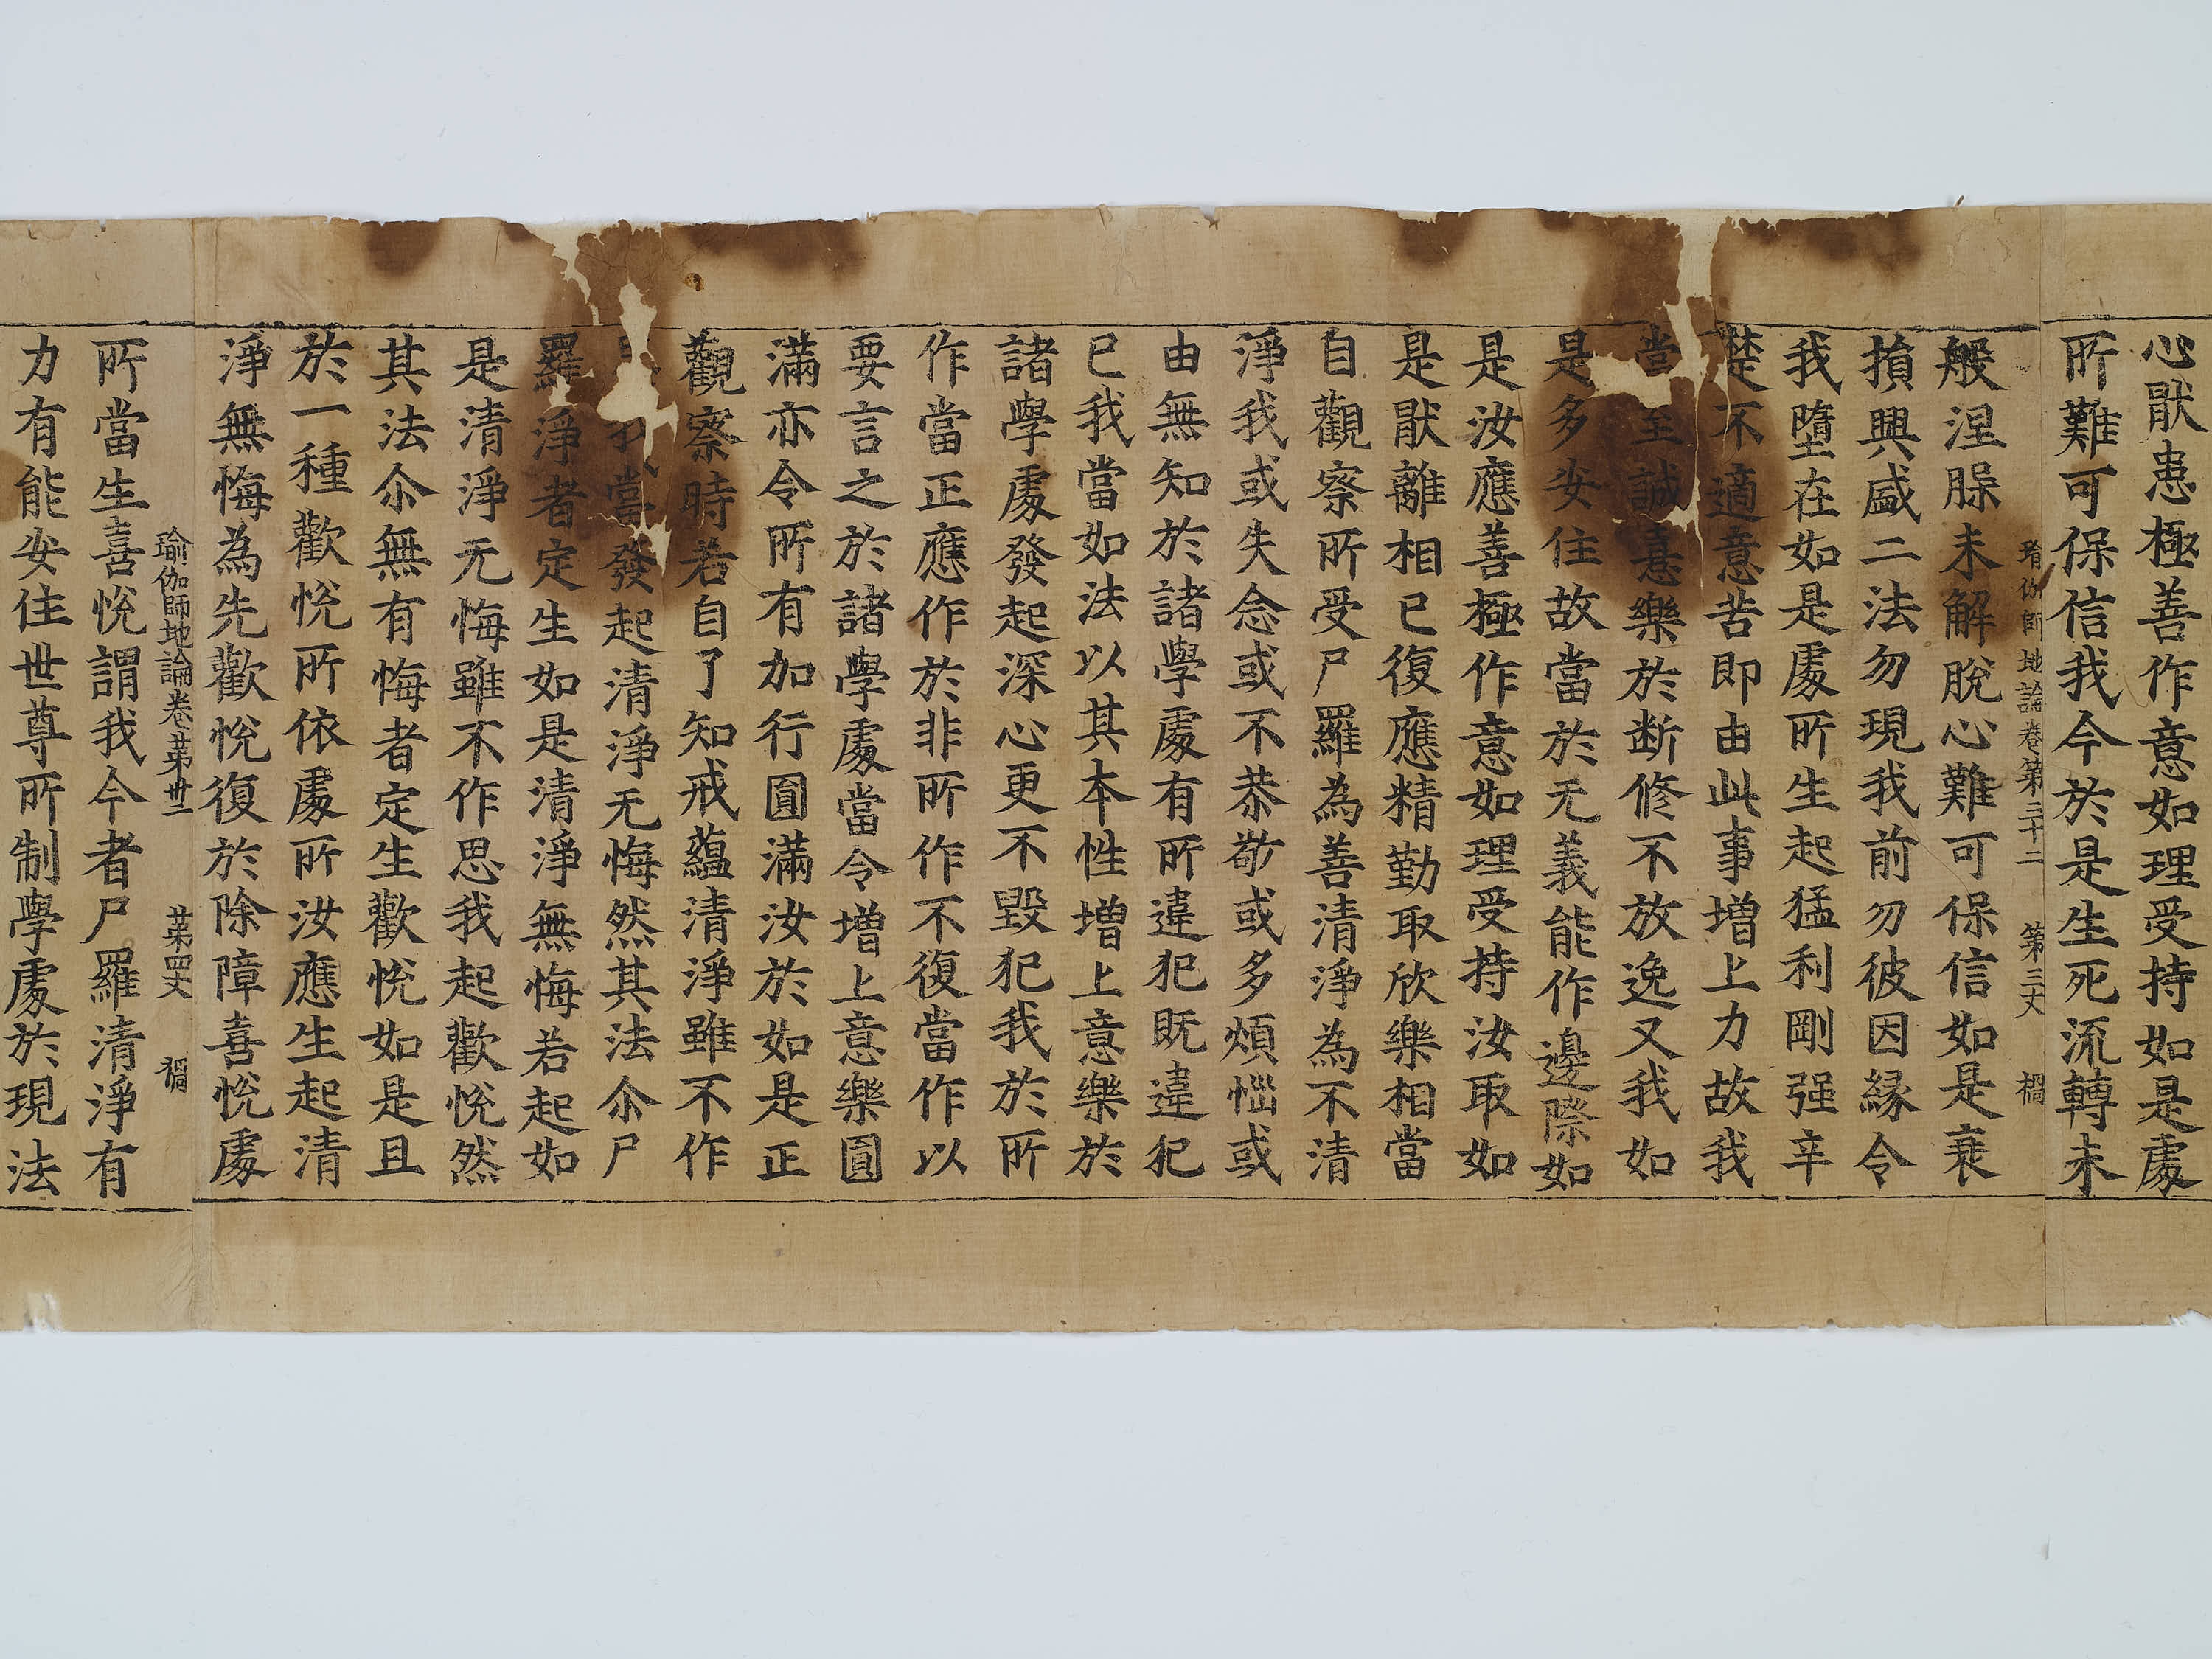 心猒患極善作意如理受持如是處
所難可保信我今於是生死流轉未
瑜伽師地論卷第三十二 第三丈 榻
般涅脲未解脫心難可保信如是衰
損興盛二法勿現我前勿彼因緣令
我墮在如是處所生起猛利剛强辛
楚不適意苦即由此事增上力故我
當至誠憙樂於断修不放逸又我如
是多安住故當於无義能作邊際如
是汝應善極作意如理受持汝取如
是猒離相已復應精勤取欣樂相當
自觀察所受尸羅為善清淨為不清
淨我或失念或不恭敬或多煩惱或
由無知於諸學處有所違犯既違犯
已我當如法以其本性增上意樂於
諸學處發起深心更不毀犯我於所
作當正應作於非所作不復當作以
要言之於諸學處當令增上意樂圓
滿亦令所有加行圓滿汝於如是正
觀察時若自了知戒蘊清淨雖不作
我當發起清淨无悔然其法尒尸
羅淨者定生如是清淨無悔若起如
是清淨无悔雖不作思我起歡悅然
其法尒無有悔者定生歡悅如是且
於一種歡悅所依處所汝應生起清
淨無悔為先歡悅復於除障喜悅處
瑜伽師地論卷苐卅二 苐四丈
所當生喜悅謂我今者尸羅清淨有
力有能安住世尊所制學處於現法